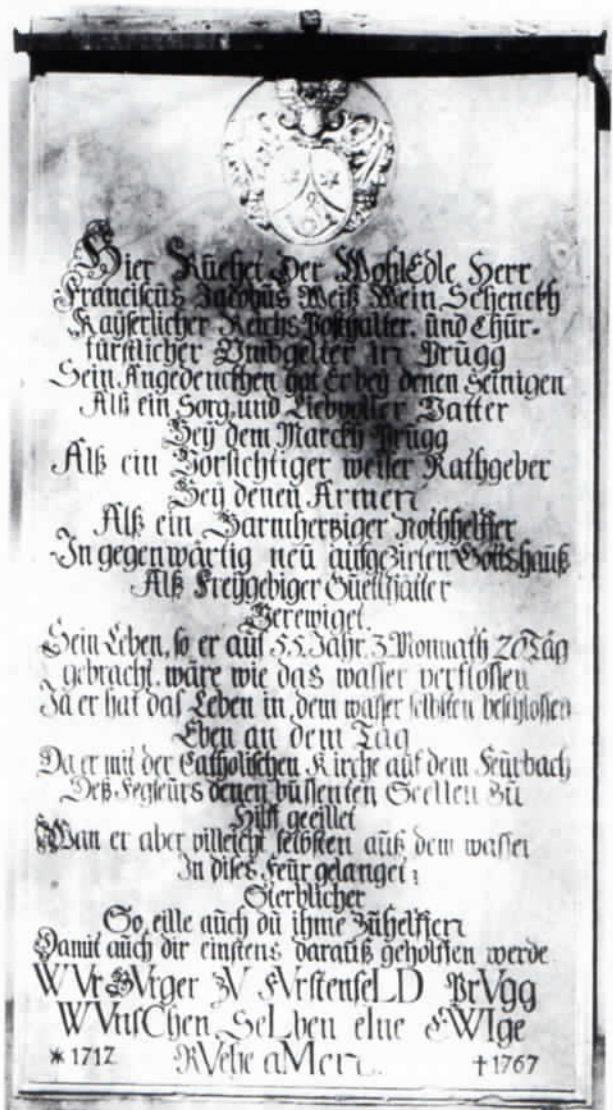 Hier Ruehet Der WohlEdle Herr
Franciscus Jacobus Weiß Wein Schenckh
Kayserlicher Reichs Posthalter. und Chur-
fürstlicher Umbgelter in Prugg
Sein Angedenckhen hat Er bey denen Seinigen
Alß ein Sorg und Liebvoller Vatter
Bey dem Marckh Prugg
Alß ein Vorsichtiger weiser Rathgeber
Bey denen Armen
Alß ein Barmherziger Nothhelffer
In gegenwärtig neu aufgezirten Gottshauß
Alß Freygebiger Guetthätter
Verewiget.
Sein Leben, so er auf 55 Jahr. 3 Monnath 20 Täg
gebracht. wäre wie das wasser verflossen
Ja er hat das Leben in dem wasser selbsten beschlossen
Eben an dem Tag
Da er mit der Catholischen Kirche auf dem Feurbach
Deß Fegfeurs denen büssenten Seellen zu
Hilff geeillet
Wan er aber villeicht selbsten auß dem wasser
In dises Feur gelanget;
Sterblicher
So eille auch du ihme zuhelffen
Damit auch dir einstens darauß geholffen werde
WVr BVrger ZV FVrstenfeLD PrVgg
WVnsChen SeLben eIne EWIge
* 1712 RVehe aMen. † 1767